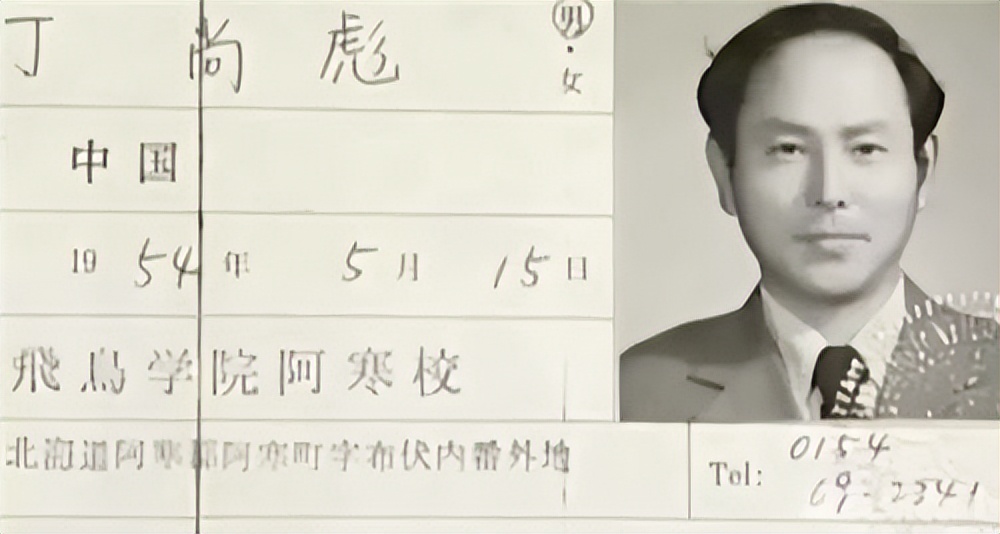 丁 尚 彪 男・女
中国
1954年 5月 15日
飛鳥学院阿寒校
北海道阿寒郡阿寒町字布伏内番外地
Tel: 0154
69-2341